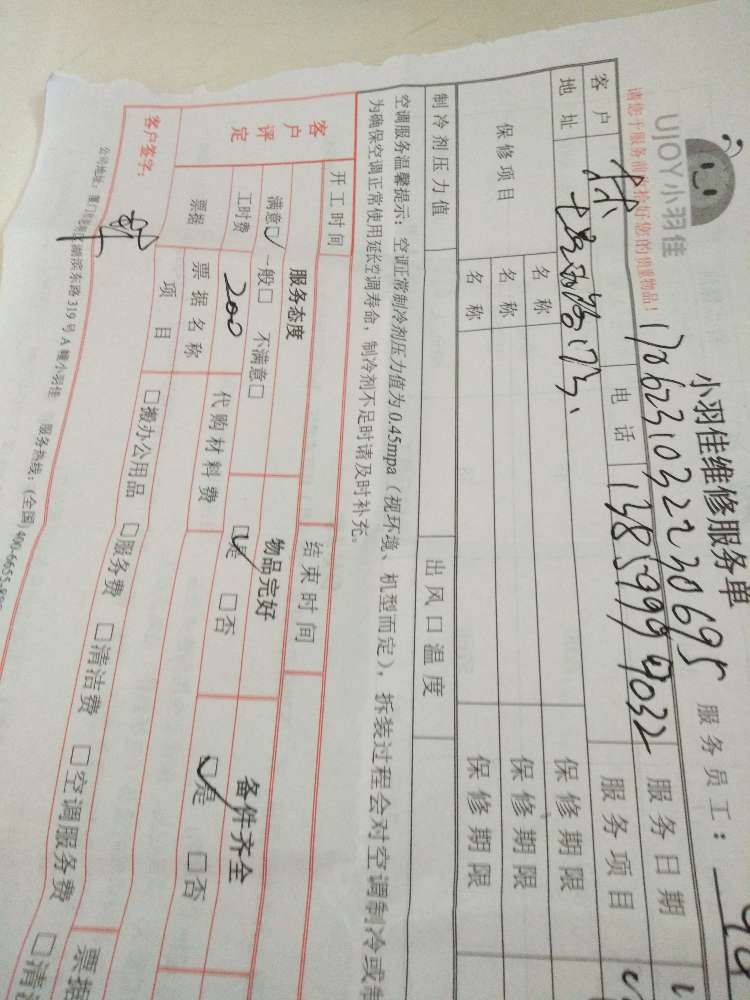 UJOY小羽佳
小羽佳维修服务单
服务员工：
请您于服务前收拾好您的贵重物品！
1706231032230695
客户 林 电话 13859994032 服务日期
地址 服务项目
保修项目 名称 保修期限
名称 保修期限
名称 保修期限
制冷剂压力值 出风口温度
空调服务温馨提示：空调正常制冷剂压力值为0.45mpa（视环境、机型而定），拆装过程会对空调制冷或制
为确保空调正常使用延长空调寿命，制冷剂不足时请及时补充。
开工时间 结束时间
客户评定 服务态度 物品完好 备件齐全
满意☑ 一般□ 不满意□ ☑是 □否 ☑是 □否
工时费 200 代购材料费
票据 票据名称 票据
项目 □搬办公用品 □服务费 □清洁费 □空调服务费 □清洁
客户签字：
公司地址：厦门市思明区湖滨东路319号A幢小羽佳 服务热线：(全国)400-6655-